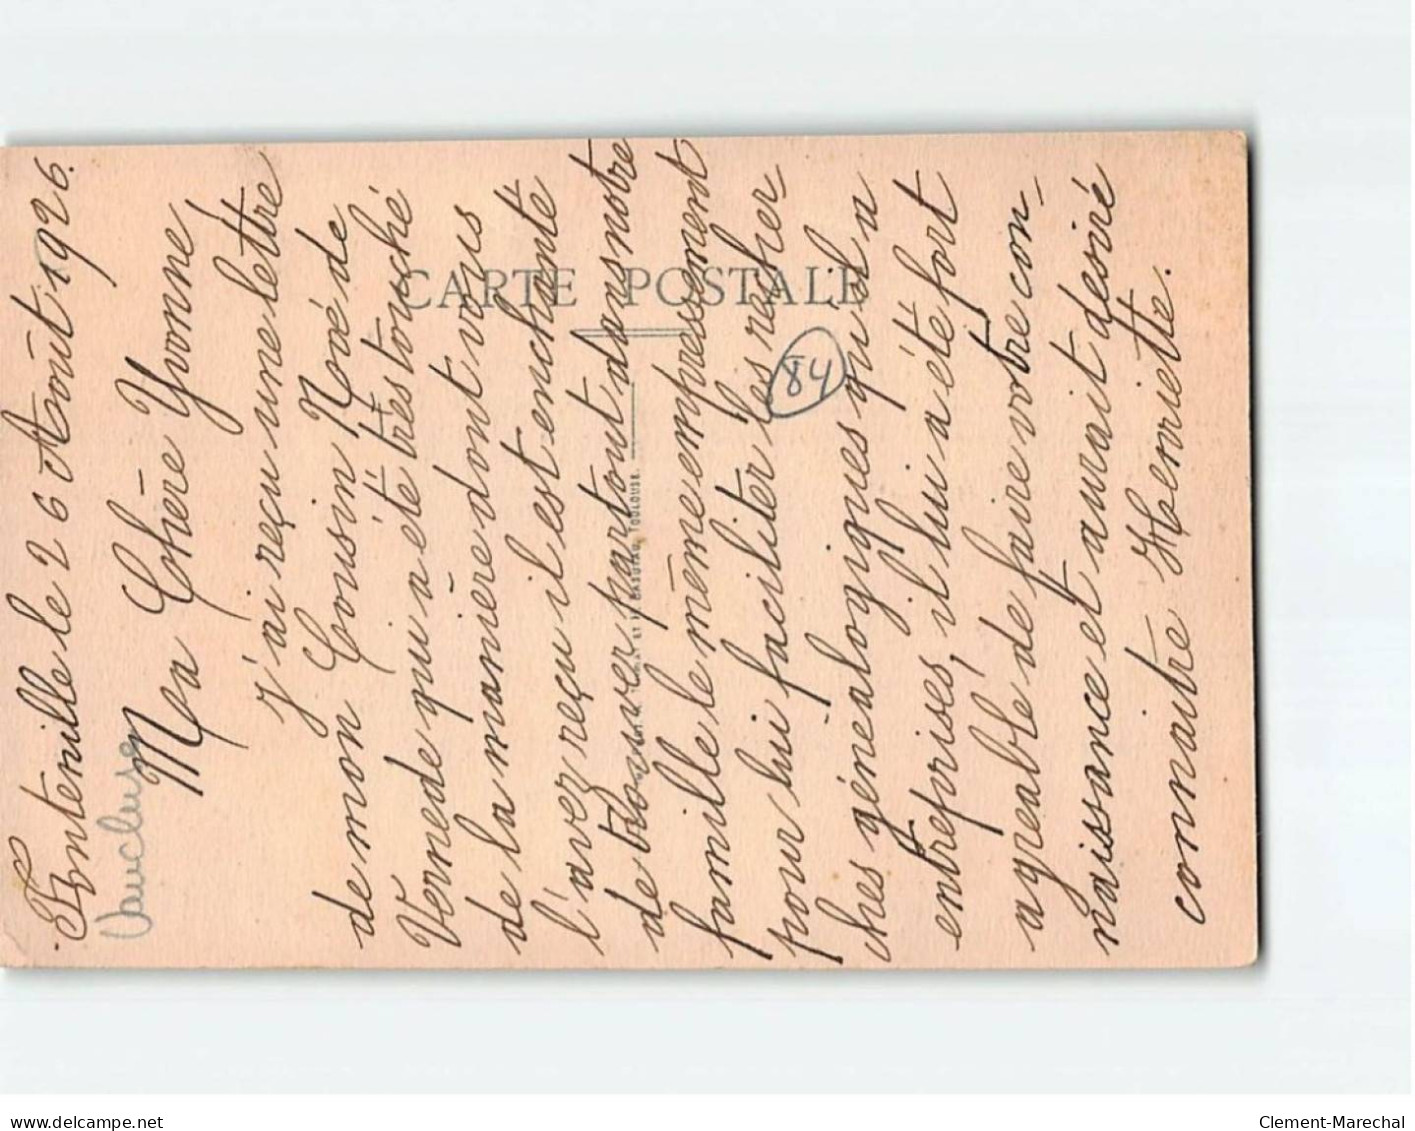 Fonteville le 26 Août 1926.
Vaucluse
Ma Chère Yvonne,
J'ai reçu une lettre
de mon Cousin Noré de
Vernede qui a été très touché
de la manière dont vous
l'avez reçu il est enchanté
de trouver partout dans notre
famille le même empressement
pour lui faciliter les recher-
ches généalogiques qu'il a
entreprises, il lui a été fort
agréable de faire votre con-
naissance et aurait desiré
connaitre Henriette.
CARTE POSTALE
84
TOULOUSE.
delcampe.net
Clement-Marechal